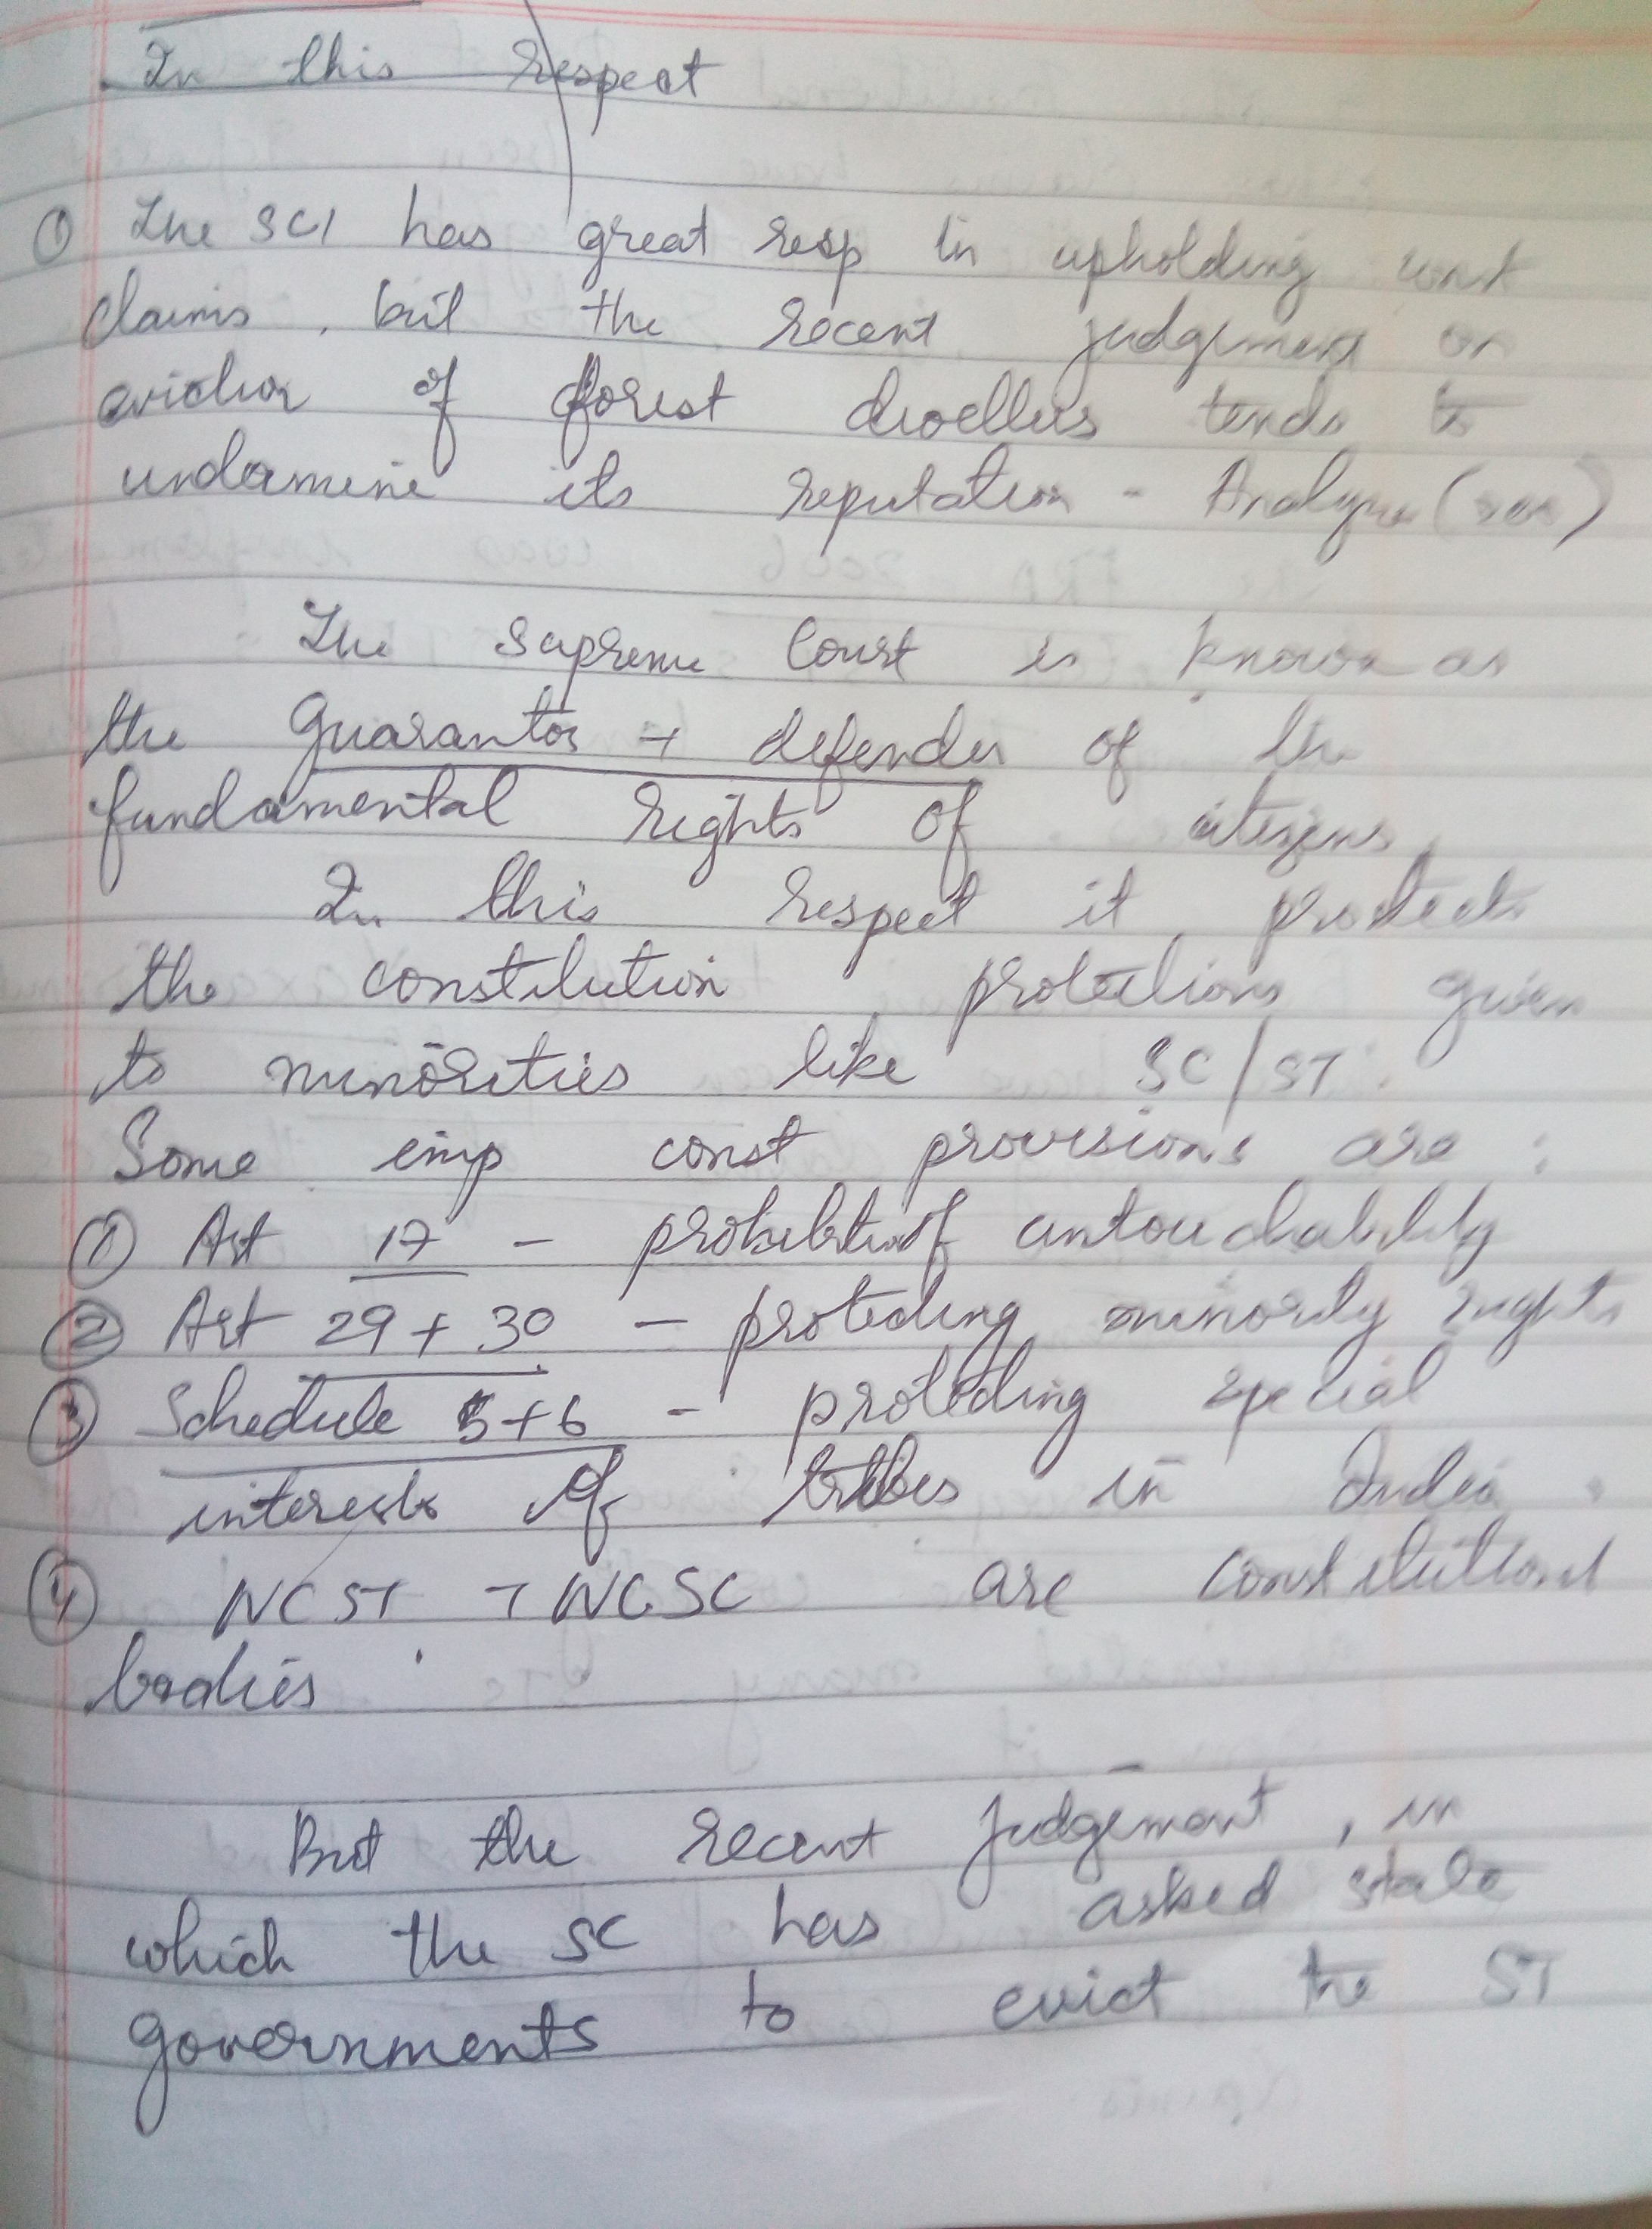 In this respect
① The SCI has great resp in upholding const
claims, but the recent judgement on
eviction of forest dwellers tends to
undermine its reputation - Analyse (200)
The Supreme Court is known as
the Guarantor + defender of the
fundamental rights of citizens.
In this respect it protects
the constitution protections given
to minorities like SC/ST.
Some imp const provisions are :
① Art 17 - prohibition of untouchability
② Art 29 + 30 - protecting minority rights
③ Schedule 5+6 - protecting special
interests of tribes in India.
④ NCST + NCSC are constitutional
bodies.
But the recent judgement, in
which the SC has asked state
governments to evict the ST